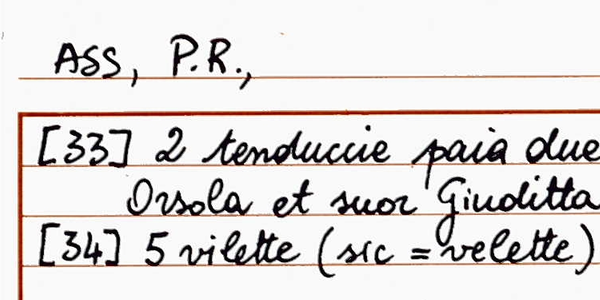 ASS, P.R.,
[33] 2 tenduccie paia due
Orsola et suor Giuditta
[34] 5 vilette (sic = velette)